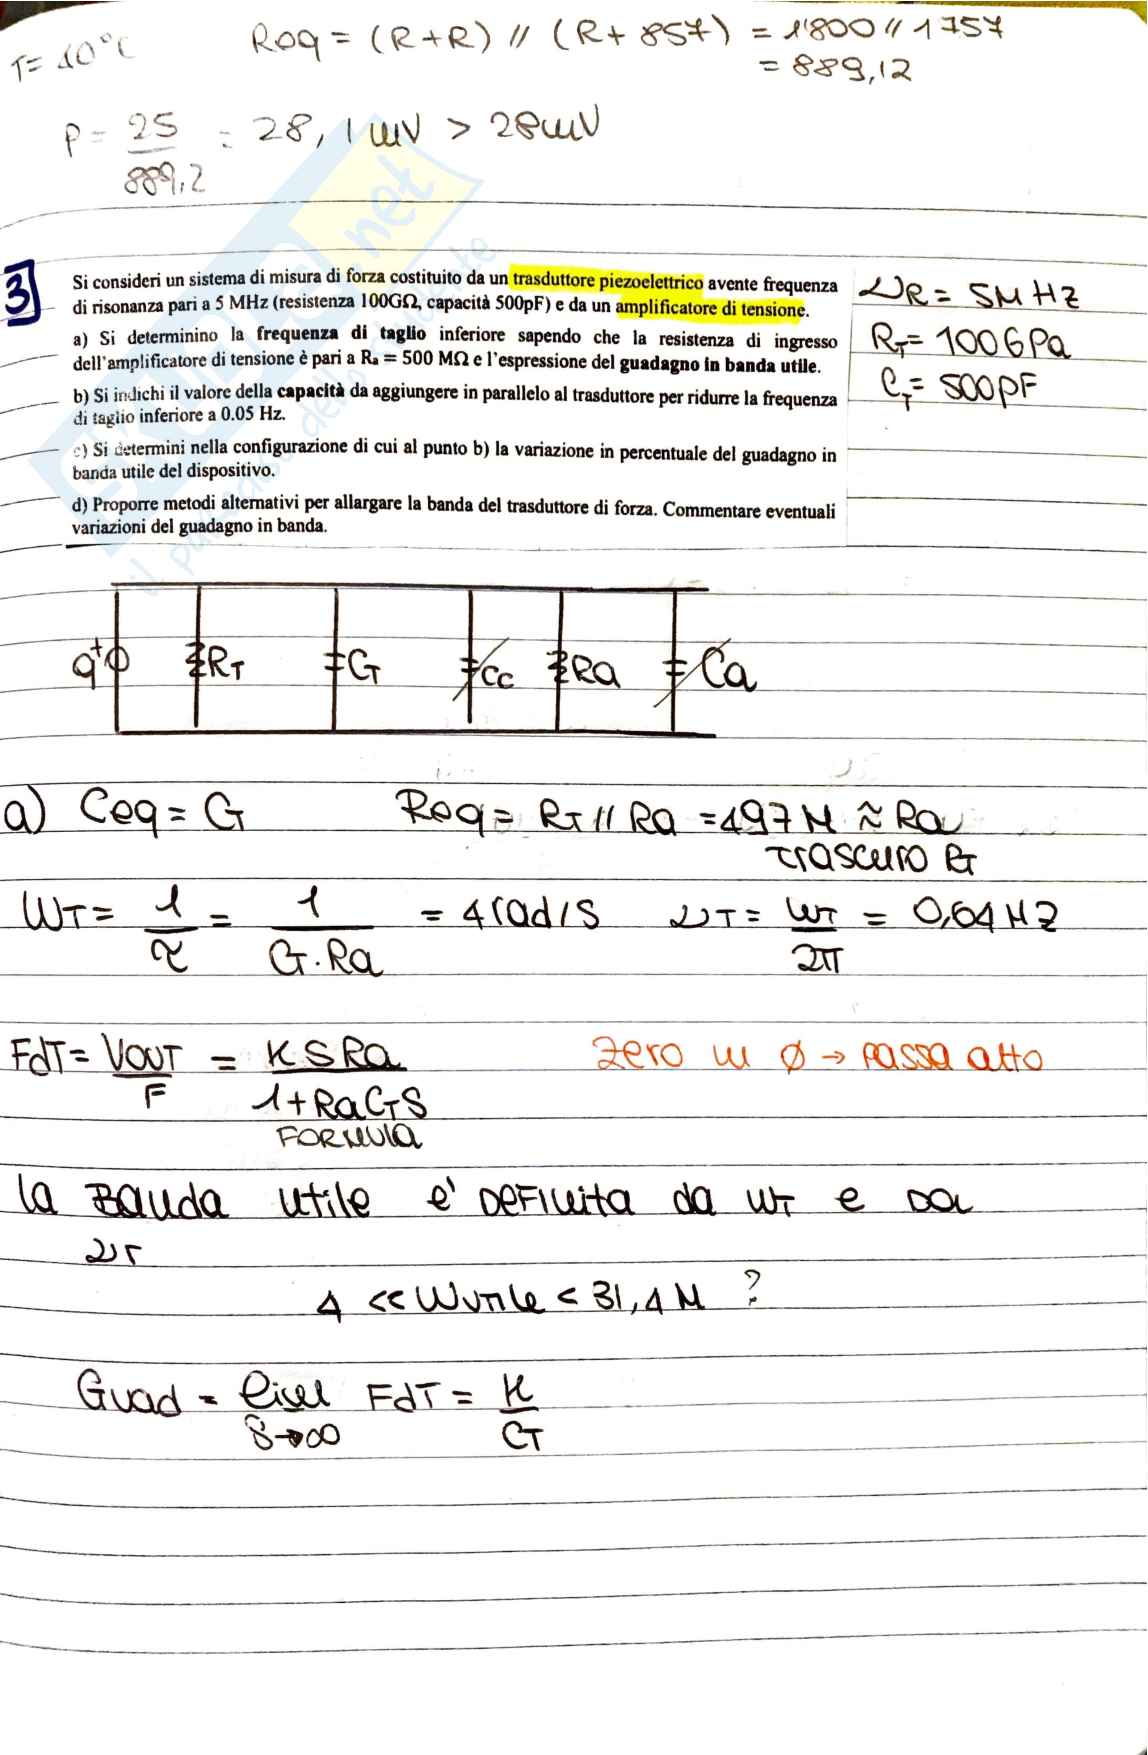 T= 10°C
Req = (R+R) // (R+ 857) = 1'800 // 1757
= 889,12
P = 25 / 889,2 = 28,1 mV > 28mV
3
Si consideri un sistema di misura di forza costituito da un trasduttore piezoelettrico avente frequenza
di risonanza pari a 5 MHz (resistenza 100GΩ, capacità 500pF) e da un amplificatore di tensione.
a) Si determinino la frequenza di taglio inferiore sapendo che la resistenza di ingresso
dell'amplificatore di tensione è pari a Ra = 500 MΩ e l'espressione del guadagno in banda utile.
b) Si indichi il valore della capacità da aggiungere in parallelo al trasduttore per ridurre la frequenza
di taglio inferiore a 0.05 Hz.
c) Si determini nella configurazione di cui al punto b) la variazione in percentuale del guadagno in
banda utile del dispositivo.
d) Proporre metodi alternativi per allargare la banda del trasduttore di forza. Commentare eventuali
variazioni del guadagno in banda.
νR = 5MHZ
RT = 100GPa
CT = 500pF
q+ RT CT Cc Ra Ca
a) Ceq = CT Req = RT // Ra = 497 M ≈ Ra
trascuro RT
WT = 1/τ = 1/(CT · Ra) = 4 rad/s νT = WT/2π = 0,64 HZ
FdT = VOUT/F = K S Ra / (1 + Ra CT S) zero in ø → passa alto
FORMULA
la Banda utile e' DEFinita da WT e da
νr
4 << Wutile < 31,4 M ?
Guad = lim S→∞ FdT = K/CT